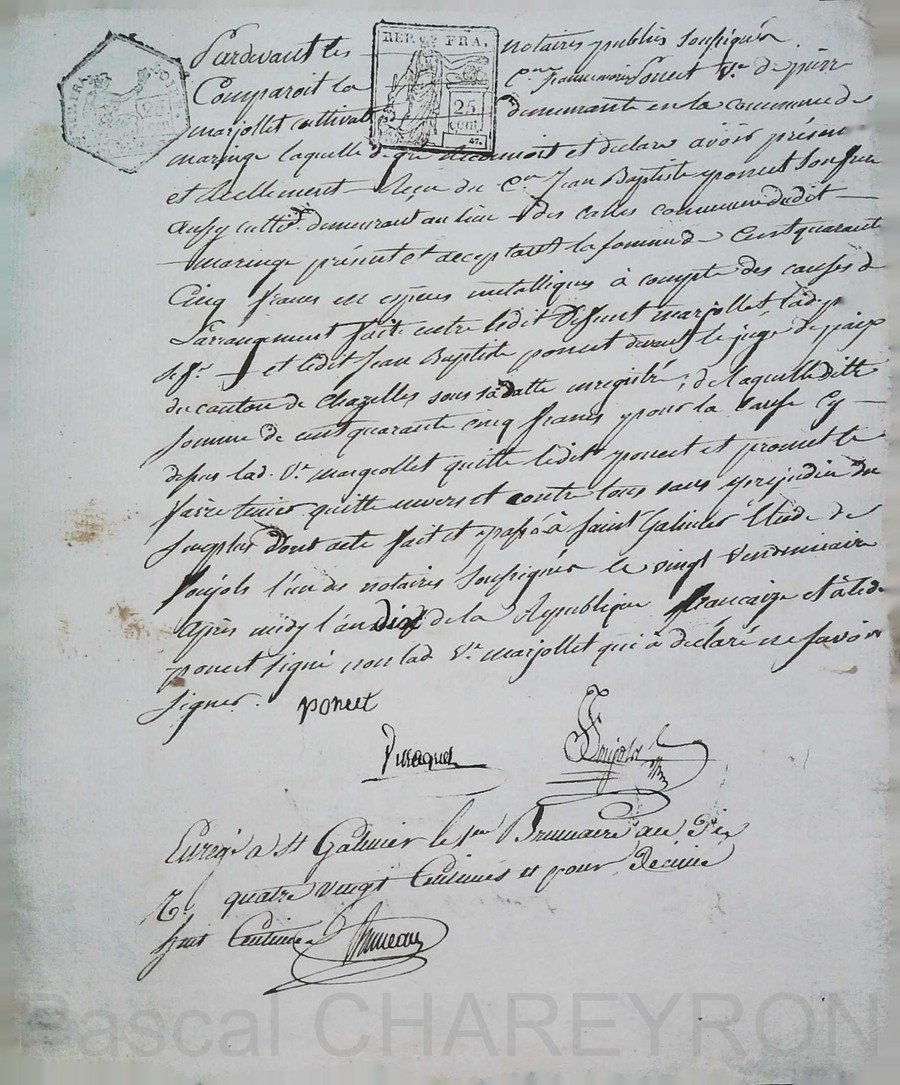 Pardevant les notaires publics soussignés
REP. FRA.
25 cent.
Comparoit la C.ne françoise Poncet V.e de pierre
marjollet cultivat. demeurante en la commune de
maringe laquelle de gré reconnoit et declare avoir présen
et réellement Reçu du C.en Jean Baptiste poncet son frere
aussy cultiv. demeurant au lieu des calles commune dudit
maringe présent et acceptant la somme de Cent quarante
Cinq francs en especes metalliques à compte des causes de
L'arrangement faite entre ledit deffunt marjollet lad.
et ledit Jean Baptiste poncet devant le juge de paix
du canton de Chazelles sous sa datte enregistré ; de laquelle ditte
somme de cent quarante cinq francs pour la Cause Cy
depus lad. V.e marjollet quitte ledit poncet et promet le
faire tenir quitte envers et contre tous sans prejudice du
surplus dont acte fait et passé à Saint Galmier Etude de
Poujols l'un des notaires soussignés le vingt Vendemiaire
Apres midy l'an dix de la Republique francaize et à led.
poncet signé non lad V.e marjollet qui à déclaré ne savoir
signer.
poncet
Poujols
Enregé a St Galmier le 1er Brumaire an Dix
R. quatre vingt Centimes et pour Décime
huit Centimes
Pascal CHAREYRON